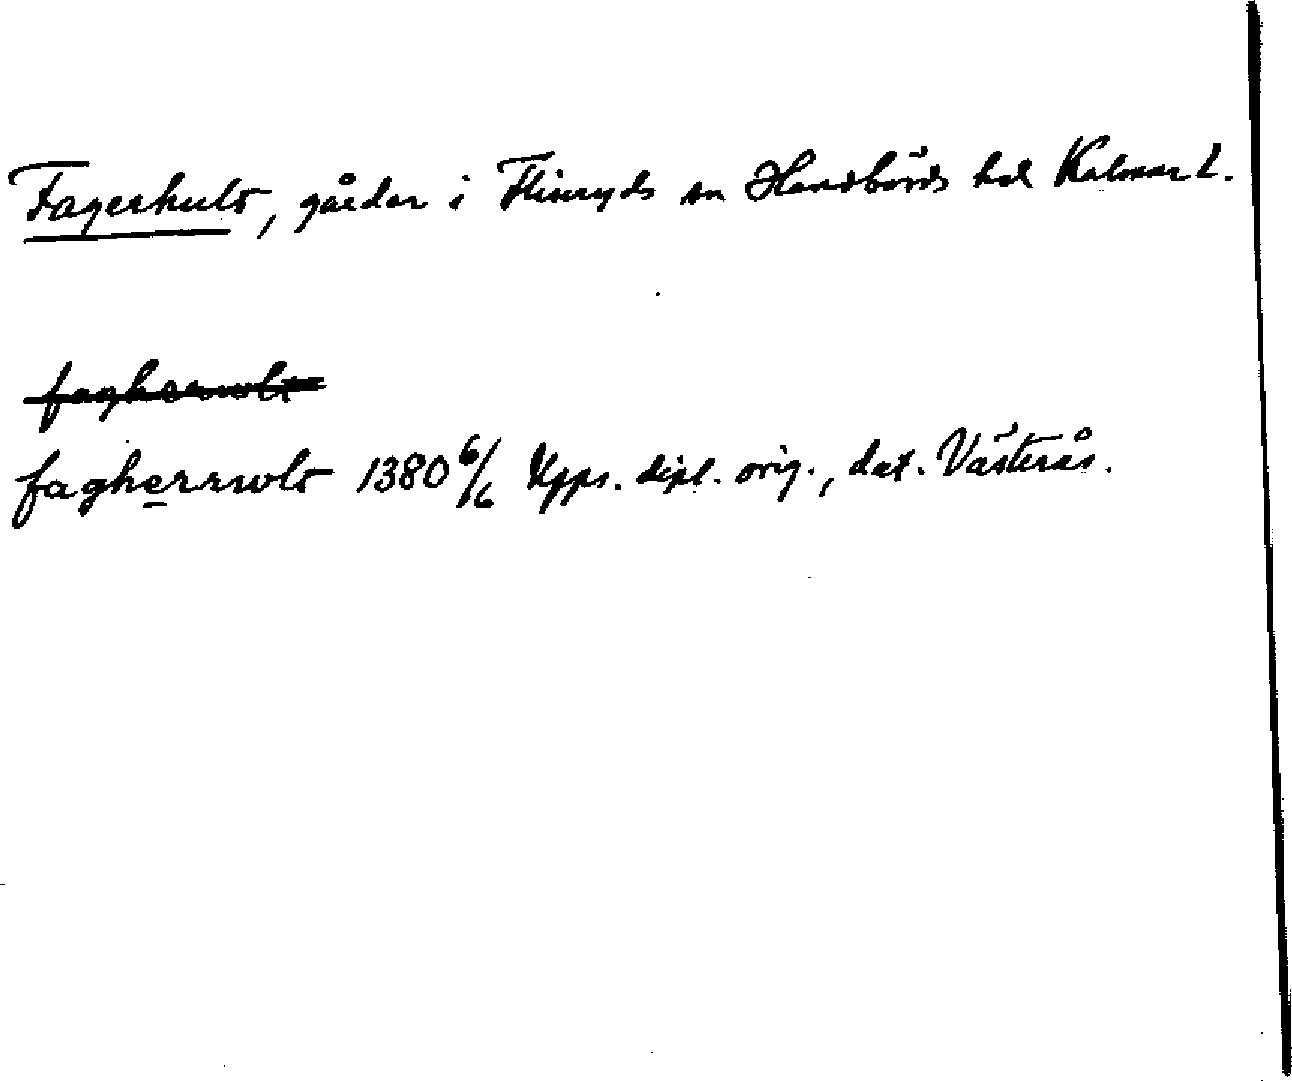 Fagerhult, gårdar i Fliseryds sn Handbörds hd Kalmar l.
fagherrwlt
fagherrwlt 1380 6/6 Upps. dipl. orig., dat. Västerås.